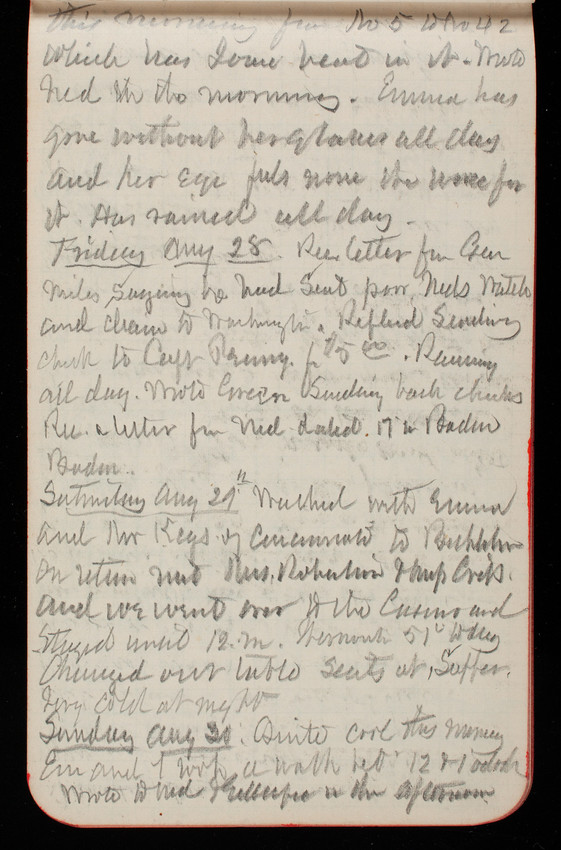 this morning from No 5 to No 42
which has some heat in it. Wrote
Ned in the morning. Emma has
gone without her glasses all day
and her eye feels none the worse for
it. Has rained all day.
Friday Aug 28. Rec letter from Gen
Miles saying he had sent poor Neds Watch
and chain to Washington. Replied Sending
check to Capt for $5 00. Raining
all day. Wrote Sending back checks
Rec. a letter from Ned dated 17" Baden
Baden.
Saturday Aug 29" Walked with Emma
and Mr Keys of Cincinnati to
On return met Mrs. Robertson & Miss
and we went over to the Casino and
Stayed until 12. m. 51° to day
Changed our table Seats at Supper.
Very cold at night
Sunday Aug 30. Quite cool this morning
Em and I took a walk bet 12 & 1 oclock
Wrote to Ned & Gillespie in the afternoon